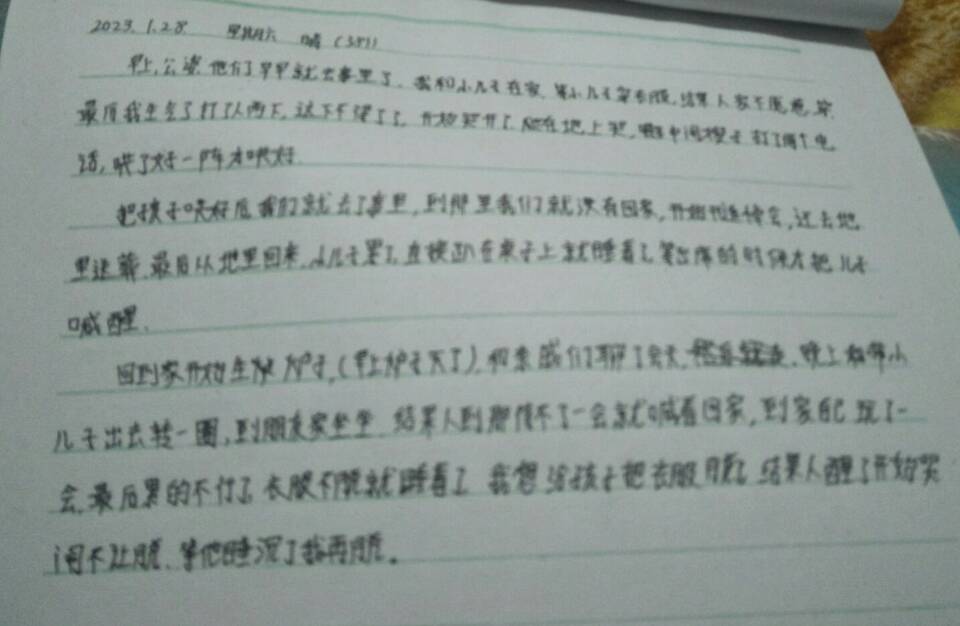 2023.1.28 星期六 晴 (381)
早上,公婆他们早早就去事里了,我和小儿子在家,等小儿子穿衣服,结果人家不愿意穿,
最后我生气了打了人两下,这下不得了了,开始哭开了,爬在地上哭,中间嫂子打了两个电
话,哄了好一阵才哄好.
把孩子哄好后我们就去了事里,到那里我们就没有回家,开始,还去地
里送葬,最后从地里回来,小儿子累了,直接趴在桌子上就睡着了,等出席的时候才把儿子
喊醒.
回到家开始生炉子,(早上炉子灭了),和亲戚们聊了会天,晚上和带小
儿子出去转一圈,到朋友家坐坐.结果人到那待不了一会就喊着回家,到家自己玩了一
会,最后累的不行了,衣服不脱就睡着了.我想给孩子把衣服脱了,结果人醒了开始哭
闹不让脱,等他睡沉了我再脱。